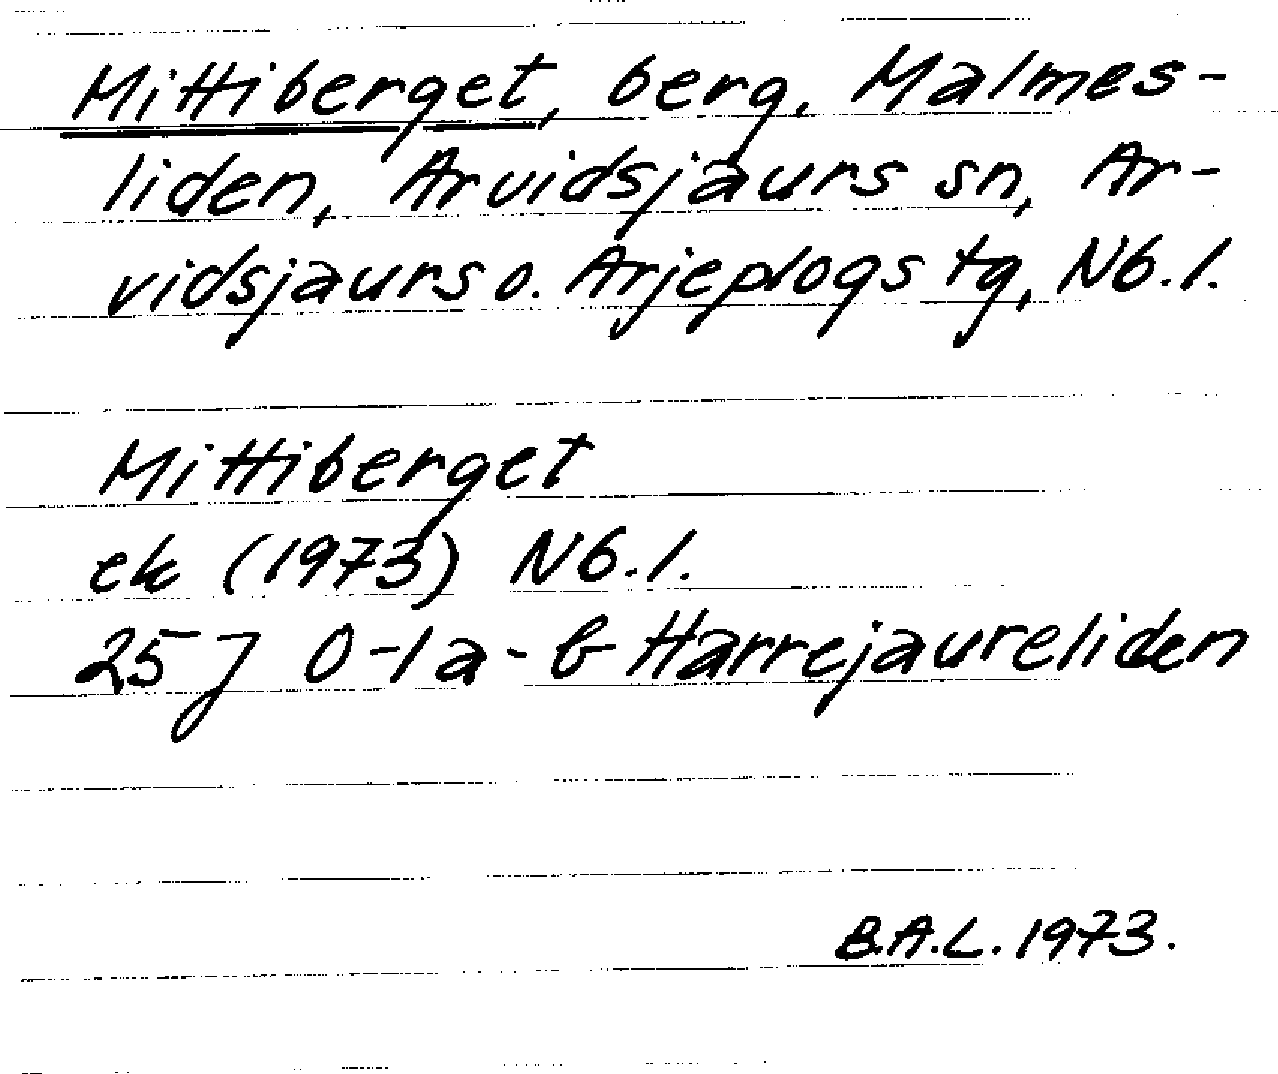 Mittiberget, berg, Malmes-
liden, Arvidsjaurs sn, Ar-
vidsjaurs o. Arjeplogs tg, Nb.l.
Mittiberget
ek (1973) Nb.l.
25 J 0-1a-b Harrejaureliden
B.A.L. 1973.